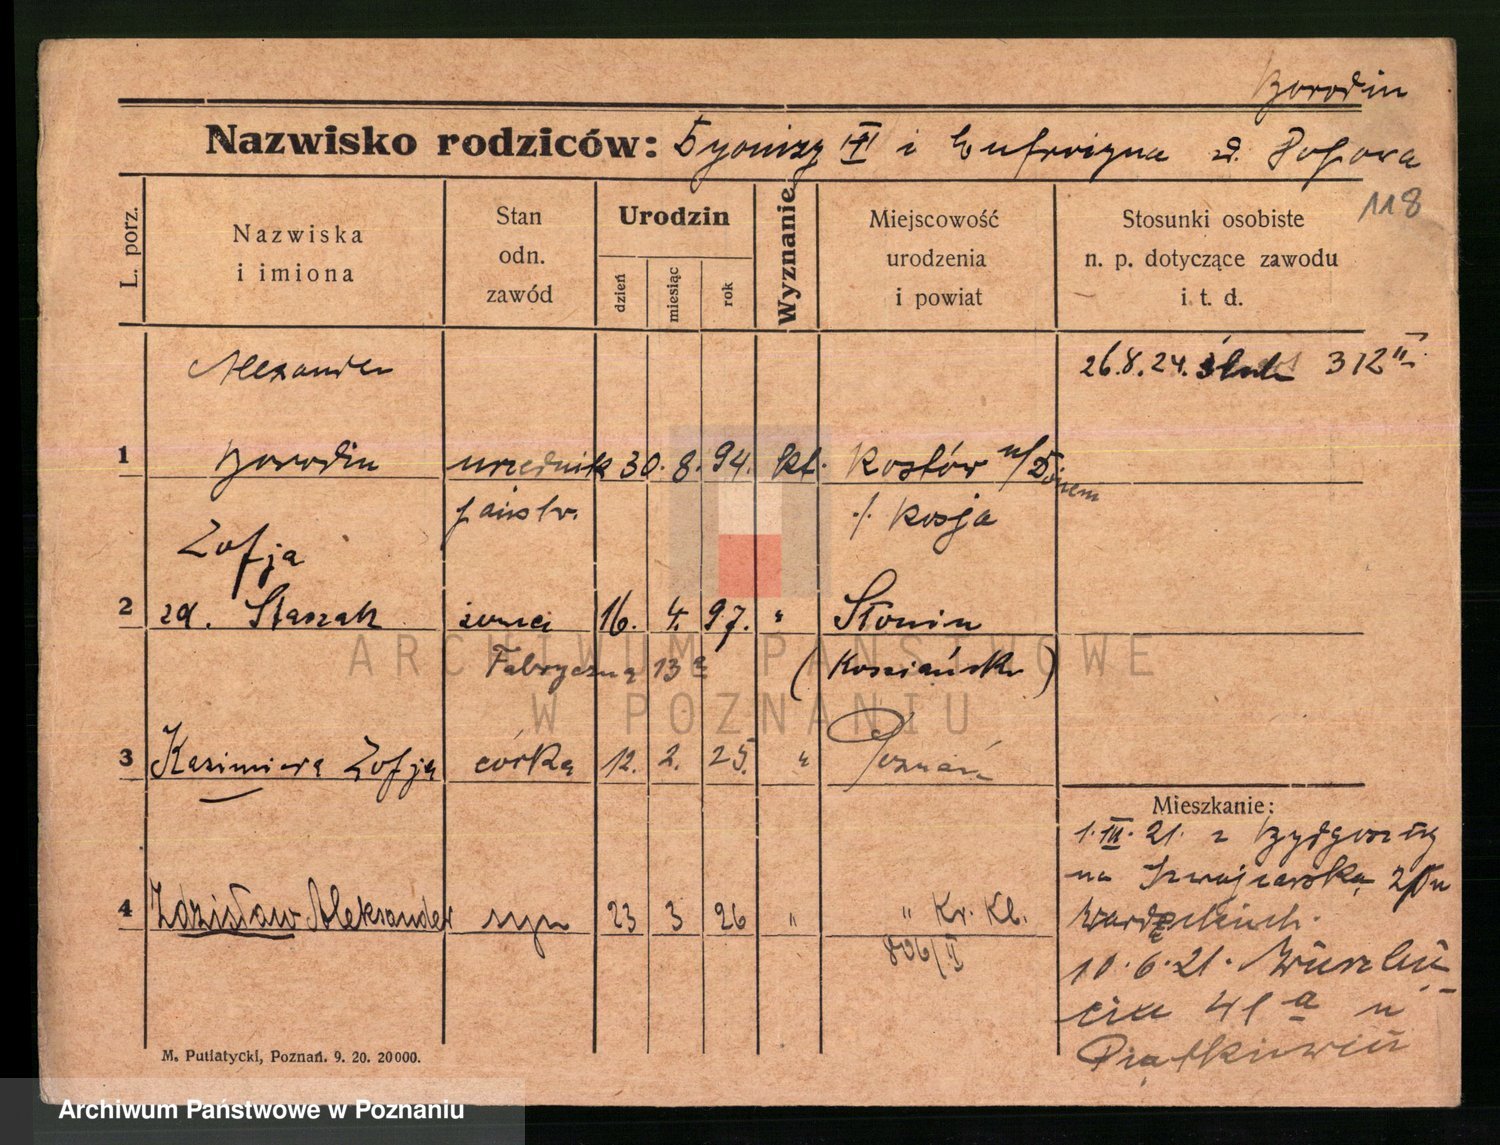 Borodin
Nazwisko rodziców: Dyonizy i Eufrozyna z d. Popowa
118
L. porz.
Nazwiska
i imiona
Stan
odn.
zawód
Urodzin
dzień
miesiąc
rok
Wyznanie
Miejscowość
urodzenia
i powiat
Stosunki osobiste
n. p. dotyczące zawodu
i. t. d.
Alexander
26.8.24. ślub 312 II
1 Borodin urzędnik 30. 8. 94. kt. Rostów n/Donem
państw. ./. Rosja
Zofja
2 zd. Staszak żona 16. 4. 97. " Słonin
Fabryczna 13a (Kościański)
3 Kazimiera Zofja córka 12. 2. 25. " Poznań
Mieszkanie:
1.III.21. z Bydgoszczy
na
4 Zdzisław Aleksander syn 23 3 26 " " Kr. Kl.
806/II
10.6.21.
41 a u
Piątkiewicz
M. Putiatycki, Poznań. 9. 20. 20000.
ARCHIWUM PAŃSTWOWE
W POZNANIU
Archiwum Państwowe w Poznaniu